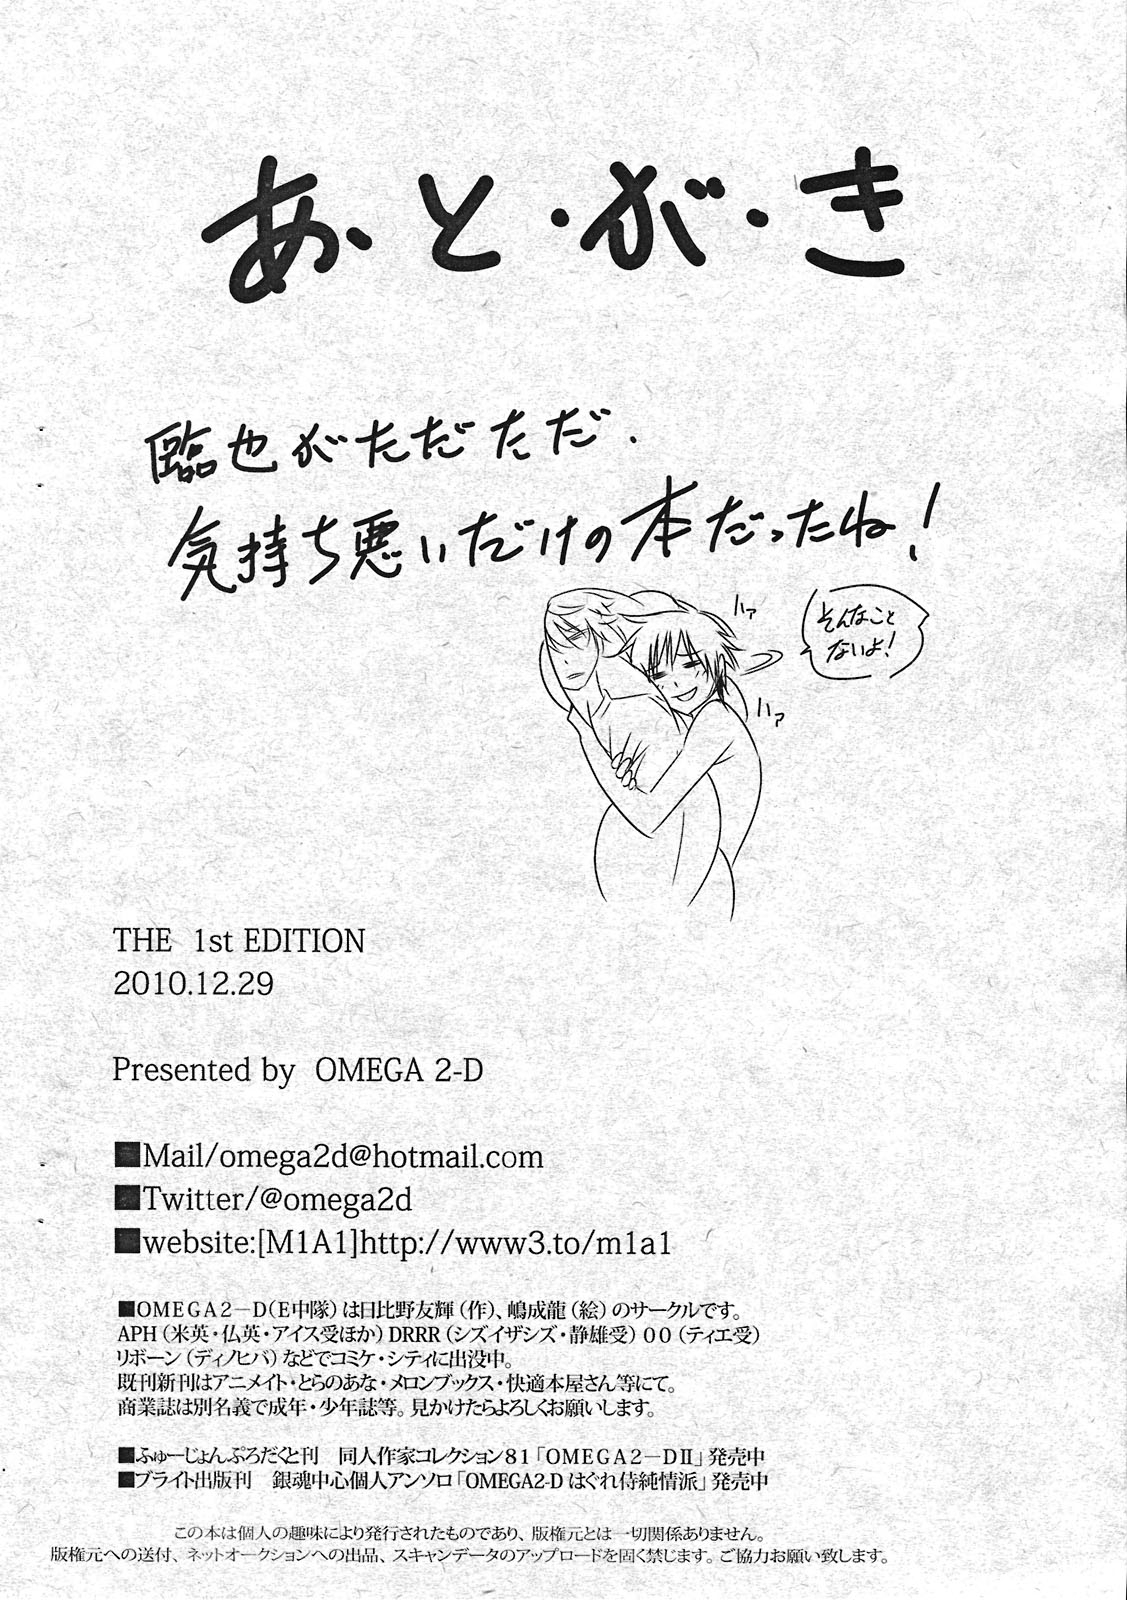 あ・と・が・き
臨也がただただ.
気持ち悪いだけの本だったね!
ハァ
そんなこと
ないよ!
ハァ
THE 1st EDITION
2010.12.29
Presented by OMEGA 2-D
■Mail/omega2d@hotmail.com
■Twitter/@omega2d
■website:[M1A1]http://www3.to/m1a1
■OMEGA2-D(E中隊)は日比野友輝(作)、嶋成龍(絵)のサークルです。
APH(米英・仏英・アイス受ほか)DRRR(シズイザシズ・静雄受)00(ティエ受)
リボーン(ディノヒバ)などでコミケ・シティに出没中。
既刊新刊はアニメイト・とらのあな・メロンブックス・快適本屋さん等にて。
商業誌は別名義で成年・少年誌等。見かけたらよろしくお願いします。
■ふゅーじょんぷろだくと刊 同人作家コレクション81「OMEGA2-DII」発売中
■ブライト出版刊 銀魂中心個人アンソロ「OMEGA2-D はぐれ侍純情派」発売中
この本は個人の趣味により発行されたものであり、版権元とは一切関係ありません。
版権元への送付、ネットオークションへの出品、スキャンデータのアップロードを固く禁じます。ご協力お願い致します。